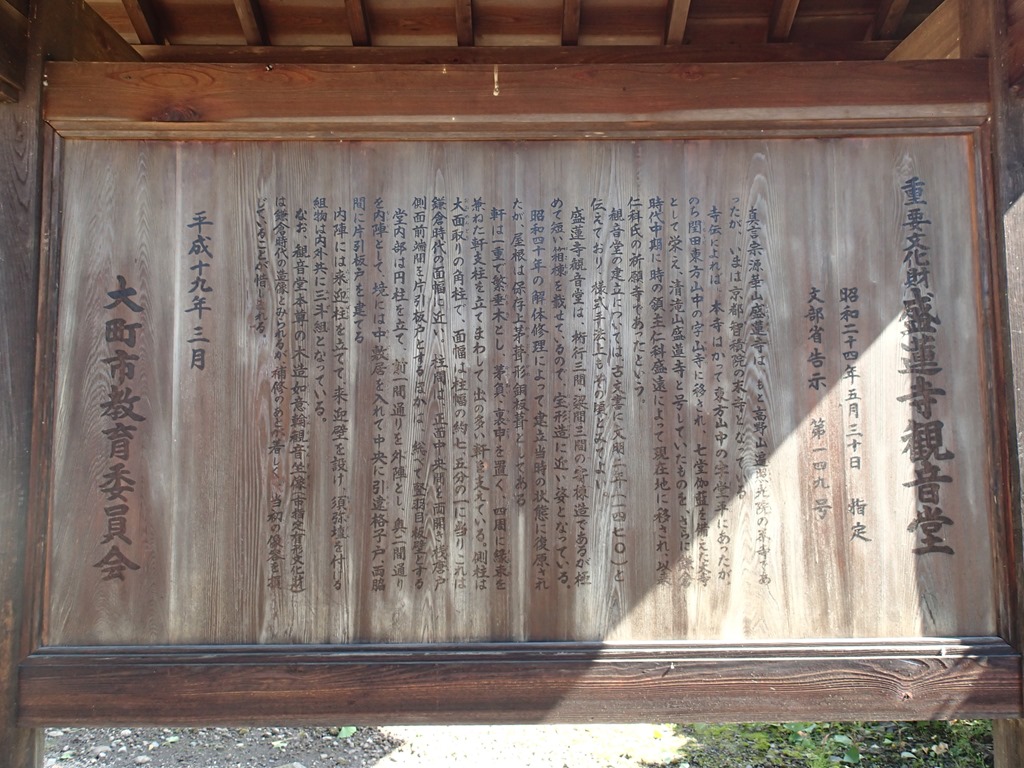 重要文化財 盛蓮寺観音堂
昭和二十四年五月三十日 指定
文部省告示 第一四九号
真言宗源華山盛蓮寺は、もと高野山遍照光院の末寺であ
ったが、いまは京都智積院の末寺となっている。
寺伝によれば、本寺はかって東方山中の字堂平にあったが、
のち閏田東方山中の字山寺に移され、七堂伽藍を備えた大寺
として栄え、清滝山盛蓮寺と号していたものを、さらに鎌倉
時代中期に時の領主仁科盛遠によって現在地に移され、以来
仁科氏の祈願寺であったという。
観音堂の建立については古文書に文明二年(一四七〇)と
伝えており、様式手法上もその頃とみてよい。
盛蓮寺観音堂は、桁行三間、梁間三間の寄棟造であるが極
めて短い箱棟を載せているので、宝形造に近い姿となっている。
昭和四十年の解体修理によって建立当時の状態に復原され
たが、屋根は保存上茅葺形銅板葺としてある。
軒は一重で繁垂木とし、茅負、裏甲を置く。四周に縁束を
兼ねた軒支柱を立てまわして出の多い軒を支えている。側柱は
大面取りの角柱で、面幅は柱幅の約七・五分の一に当りこれは
鎌倉時代の面幅に近い。柱間は、正面中央間を両開き桟唐戸
側面前端間を片引板戸とするほかは、総べて竪羽目板壁とする
堂内部は円柱を立て、前一間通りを外陣とし、奥二間通り
を内陣として、境には中敷居を入れて中央に引違格子戸両脇
間に片引板戸を建てる
内陣には来迎柱を立てて、来迎壁を設け、須弥壇を付ける
組物は内外共に三斗組となっている。
なお、観音堂本尊の木造如意輪観音坐像(市指定有形文化財)
は鎌倉時代の造像とみられるが、補修のあとが著しく、当初の像容を損
じていることが惜しまれる。
平成十九年三月
大町市教育委員会